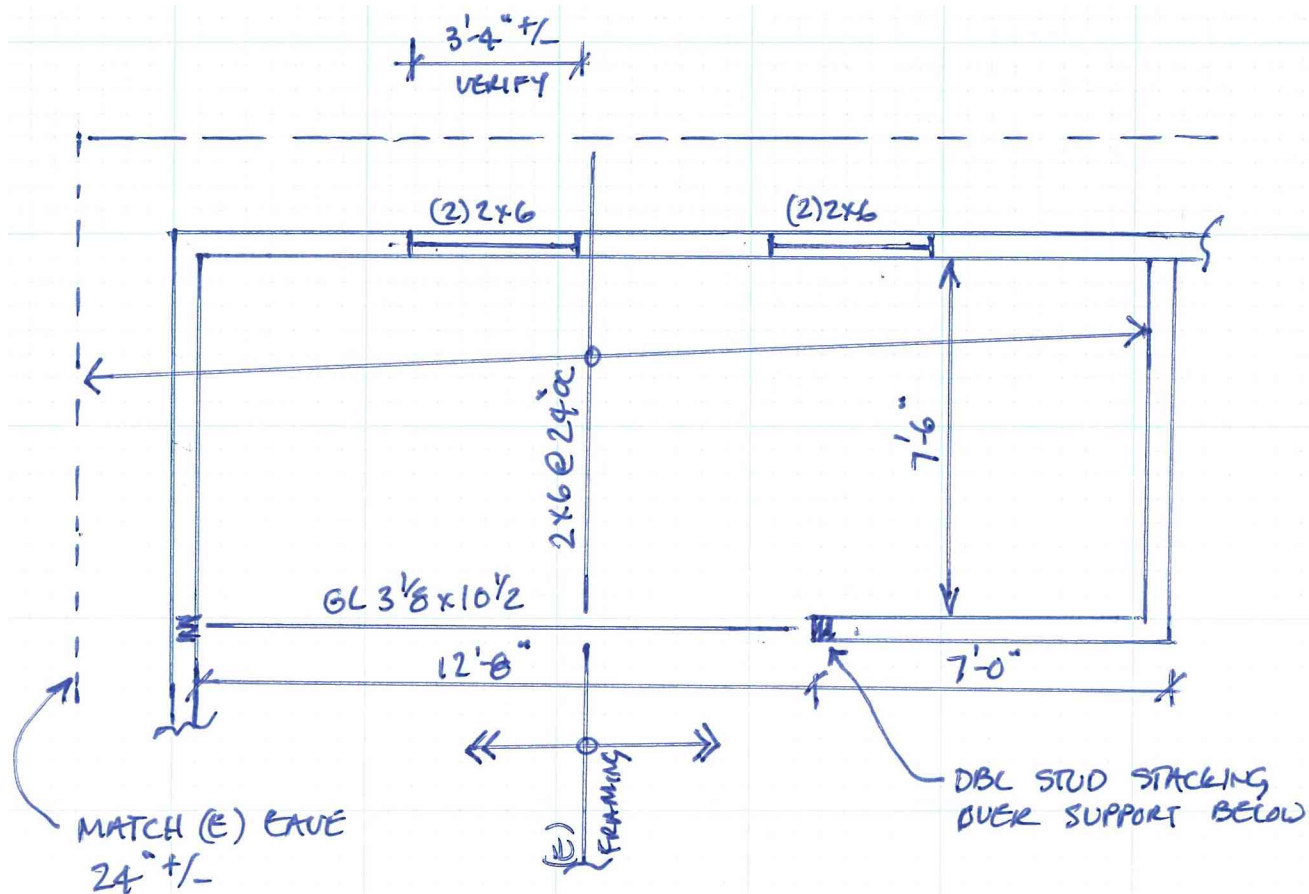 3'-4" +/-
VERIFY
(2) 2x6
(2) 2x6
2x6 @ 24" oc
7'-6"
GL 3 1/8 x 10 1/2
12'-8"
7'-0"
(E)
FRAMING
DBL STUD STACKING
OVER SUPPORT BELOW
MATCH (E) EAVE
24" +/-